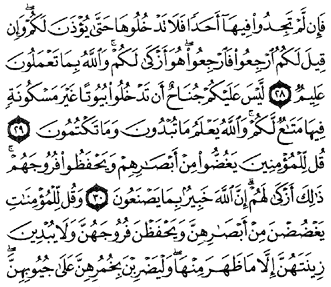 فَإِن لَّمْ تَجِدُوا۟ فِيهَآ أَحَدًا فَلَا تَدْخُلُوهَا حَتَّىٰ يُؤْذَنَ لَكُمْ ۖ وَإِن
قِيلَ لَكُمُ ٱرْجِعُوا۟ فَٱرْجِعُوا۟ ۖ هُوَ أَزْكَىٰ لَكُمْ ۚ وَٱللَّهُ بِمَا تَعْمَلُونَ
عَلِيمٌ ٢٨ لَّيْسَ عَلَيْكُمْ جُنَاحٌ أَن تَدْخُلُوا۟ بُيُوتًا غَيْرَ مَسْكُونَةٍ
فِيهَا مَتَٰعٌ لَّكُمْ ۚ وَٱللَّهُ يَعْلَمُ مَا تُبْدُونَ وَمَا تَكْتُمُونَ ٢٩
قُل لِّلْمُؤْمِنِينَ يَغُضُّوا۟ مِنْ أَبْصَٰرِهِمْ وَيَحْفَظُوا۟ فُرُوجَهُمْ ۚ
ذَٰلِكَ أَزْكَىٰ لَهُمْ ۗ إِنَّ ٱللَّهَ خَبِيرٌۢ بِمَا يَصْنَعُونَ ٣٠ وَقُل لِّلْمُؤْمِنَٰتِ
يَغْضُضْنَ مِنْ أَبْصَٰرِهِنَّ وَيَحْفَظْنَ فُرُوجَهُنَّ وَلَا يُبْدِينَ
زِينَتَهُنَّ إِلَّا مَا ظَهَرَ مِنْهَا ۖ وَلْيَضْرِبْنَ بِخُمُرِهِنَّ عَلَىٰ جُيُوبِهِنَّ ۖ